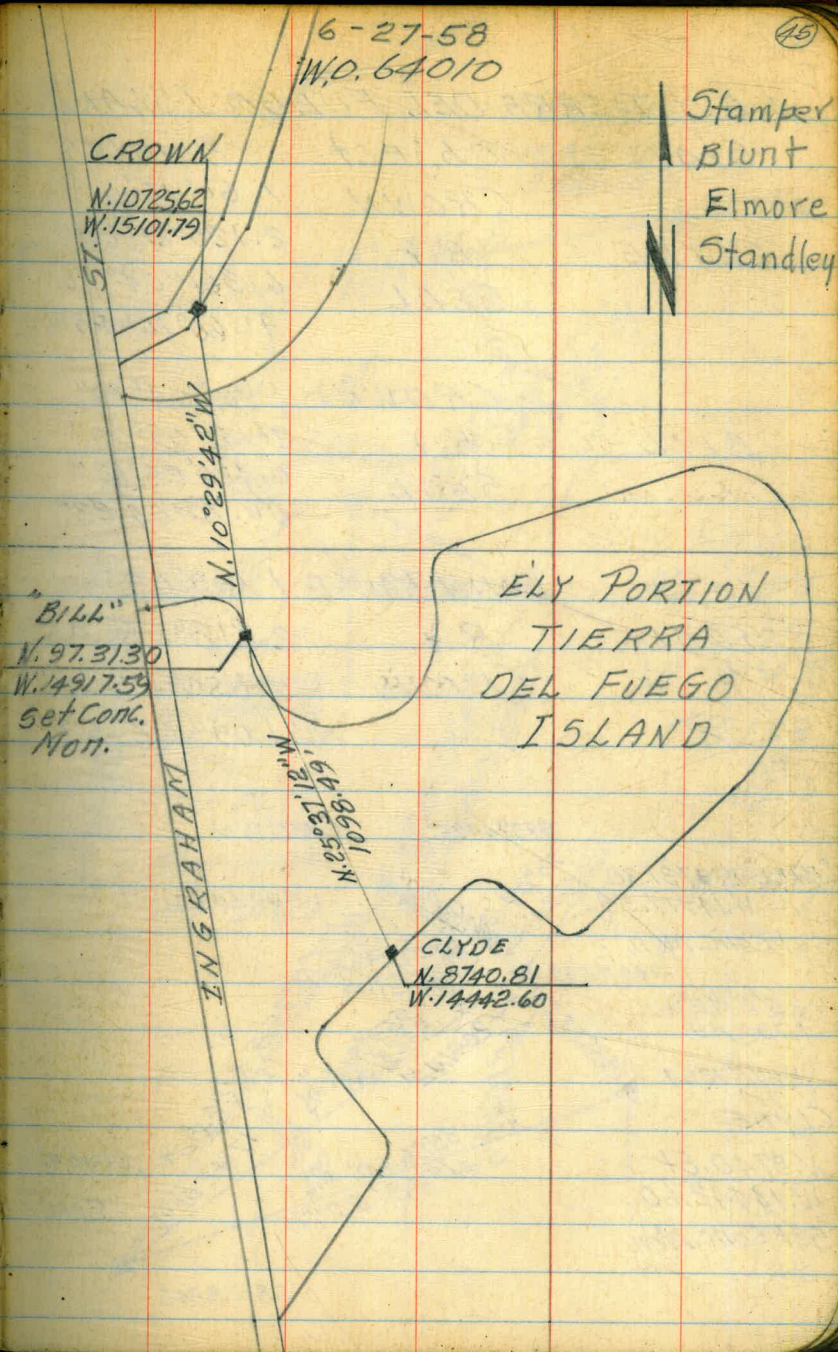 6-27-58
W.O. 64010
45
Stamper
Blunt
Elmore
Standley
N
CROWN
N.10725.62
W.15101.79
ST.
N.10°29'42"W
"BILL"
N.97.31.30
W.14917.59
Set Conc.
Mon.
E'LY PORTION
TIERRA
DEL FUEGO
ISLAND
N.25°37'12"W
1098.49'
INGRAHAM
CLYDE
N.8740.81
W.14442.60